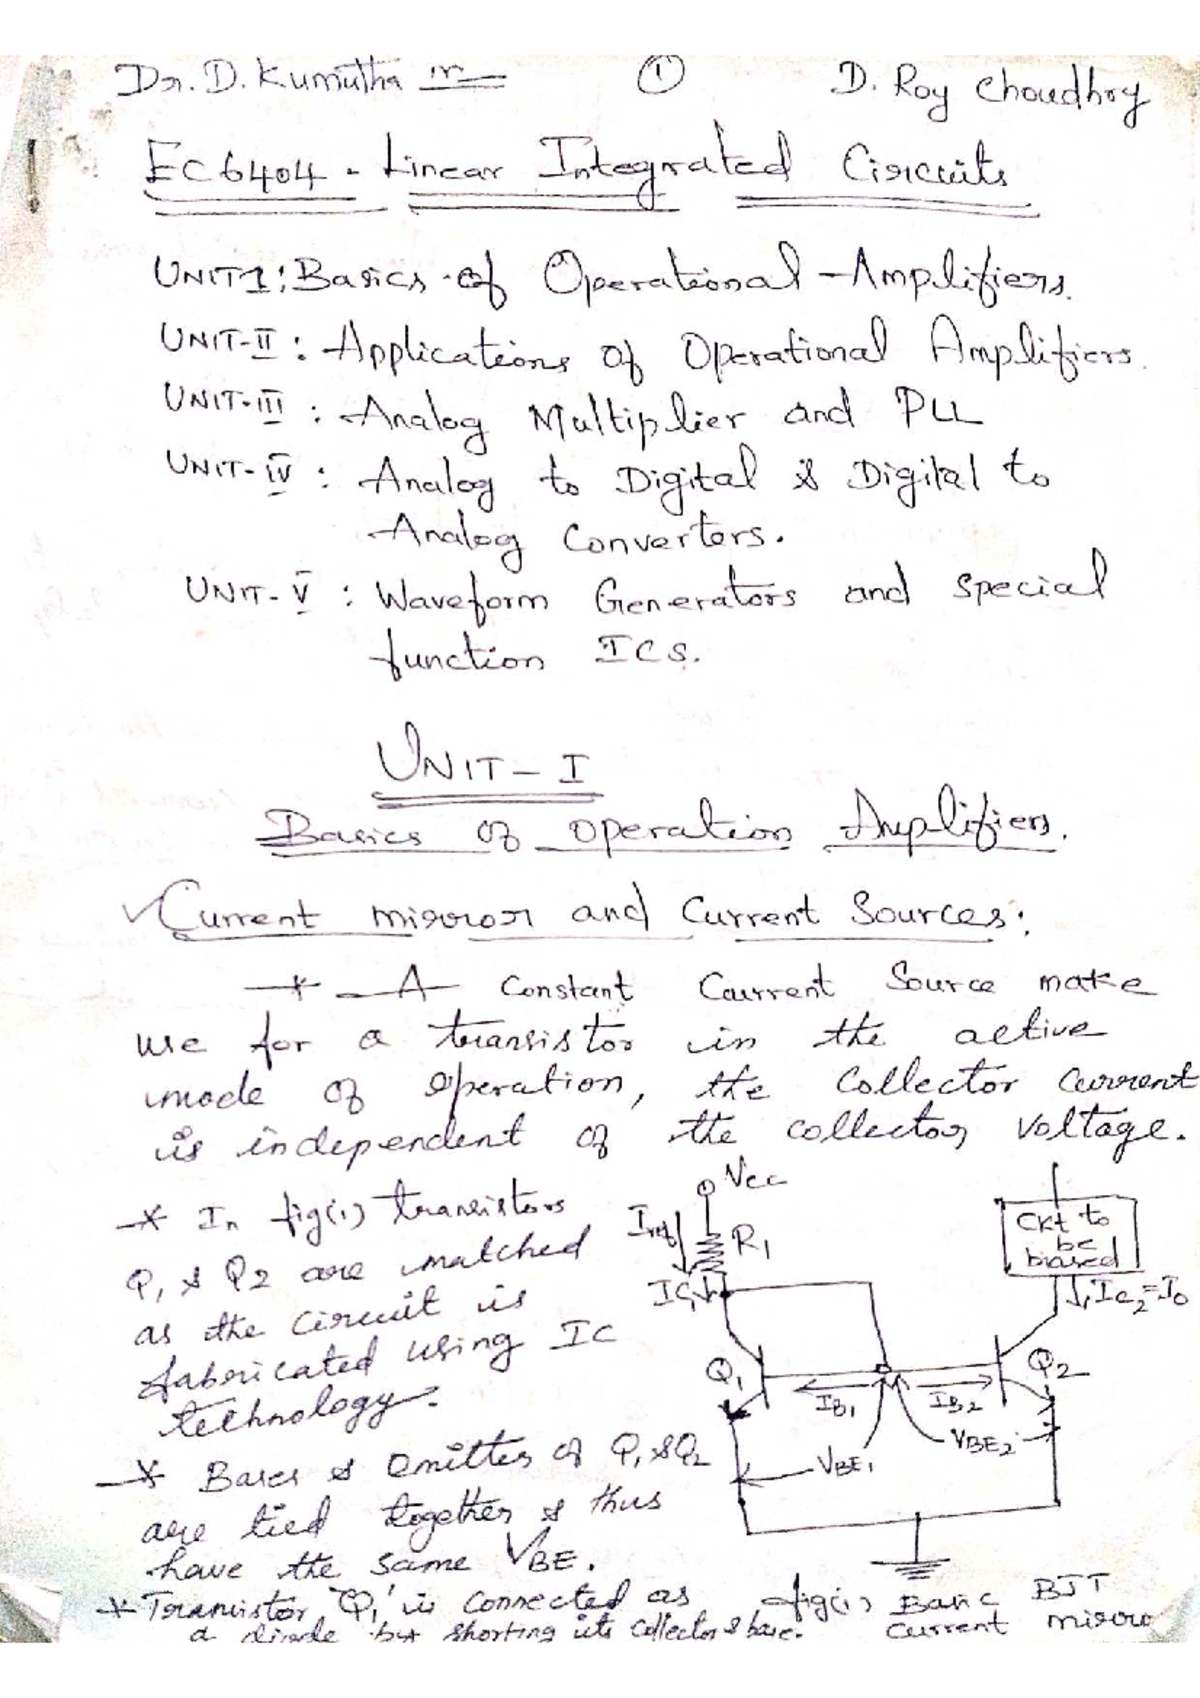 Dr. D. Kumutha
1
D. Roy Choudhry
EC6404 - Linear Integrated Circuits
UNIT1: Basics of Operational Amplifiers.
UNIT-II : Applications of Operational Amplifiers.
UNIT-III : Analog Multiplier and PLL
UNIT-IV : Analog to Digital & Digital to
Analog Converters.
UNIT-V : Waveform Generators and special
function ICs.
UNIT - I
Basics of operation Amplifiers.
Current mirror and Current Sources:
* A Constant Current Source make
use for a transistor in the active
mode of operation, the collector current
is independent of the collector voltage.
* In fig(1) transistors
Q1 & Q2 are matched
as the circuit is
fabricated using IC
technology.
* Bases & emitter of Q1 & Q2
are tied together & thus
have the same VBE.
* Transistor 'Q1' is connected as
a diode by shorting its collector & base.
Vcc
Iref
R1
IC1
Ckt to
be
biased
IC2=I0
Q1
Q2
IB1
IB2
VBE1
VBE2
fig(1) Basic BJT
current mirro